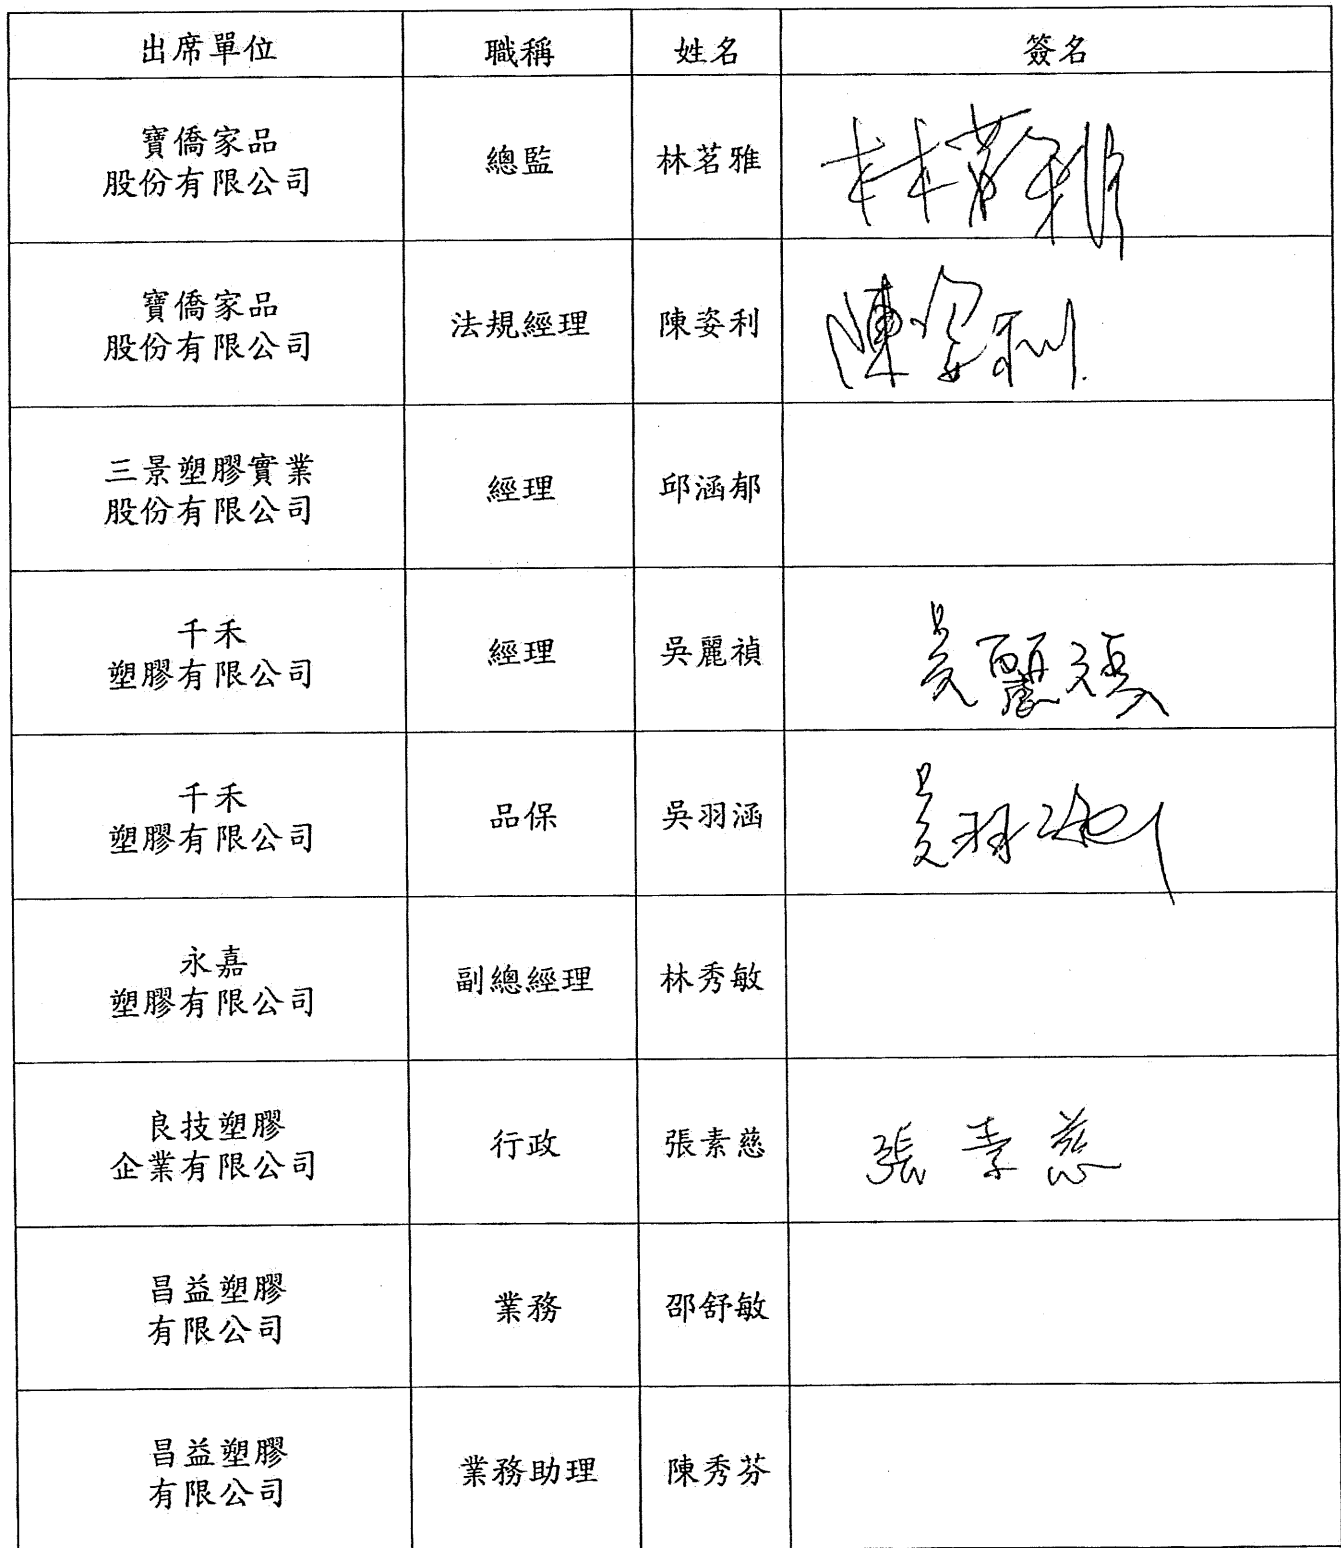 出席單位 職稱 姓名 簽名
寶僑家品
股份有限公司
總監 林茗雅 林茗雅
寶僑家品
股份有限公司
法規經理 陳姿利 陳姿利
三景塑膠實業
股份有限公司
經理 邱涵郁
千禾
塑膠有限公司
經理 吳麗禎 吳麗禎
千禾
塑膠有限公司
品保 吳羽涵 吳羽涵
永嘉
塑膠有限公司
副總經理 林秀敏
良技塑膠
企業有限公司
行政 張素慈 張素慈
昌益塑膠
有限公司
業務 邵舒敏
昌益塑膠
有限公司
業務助理 陳秀芬